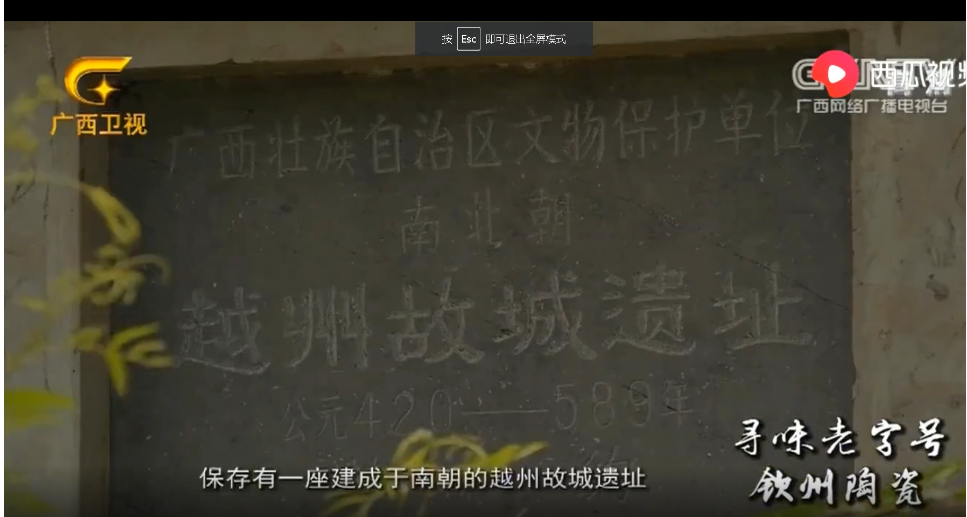 按 Esc 即可退出全屏模式
广西卫视
西瓜视频
广西网络广播电视台
广西壮族自治区文物保护单位
南北朝
越州故城遗址
公元420——589年
寻味老字号
钦州陶瓷
保存有一座建成于南朝的越州故城遗址